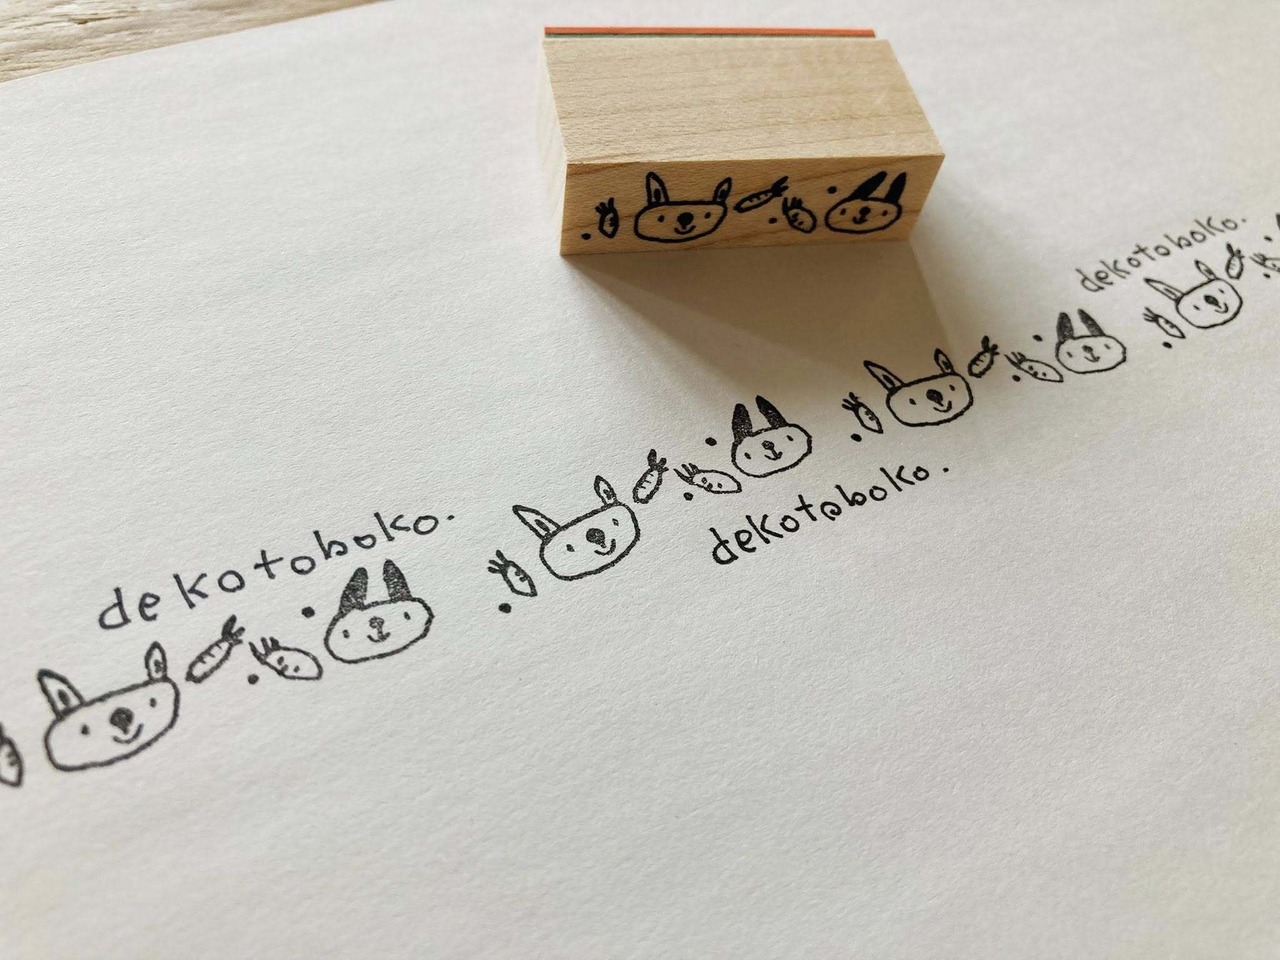 dekotoboko.
dekotoboko.
dekotoboko.